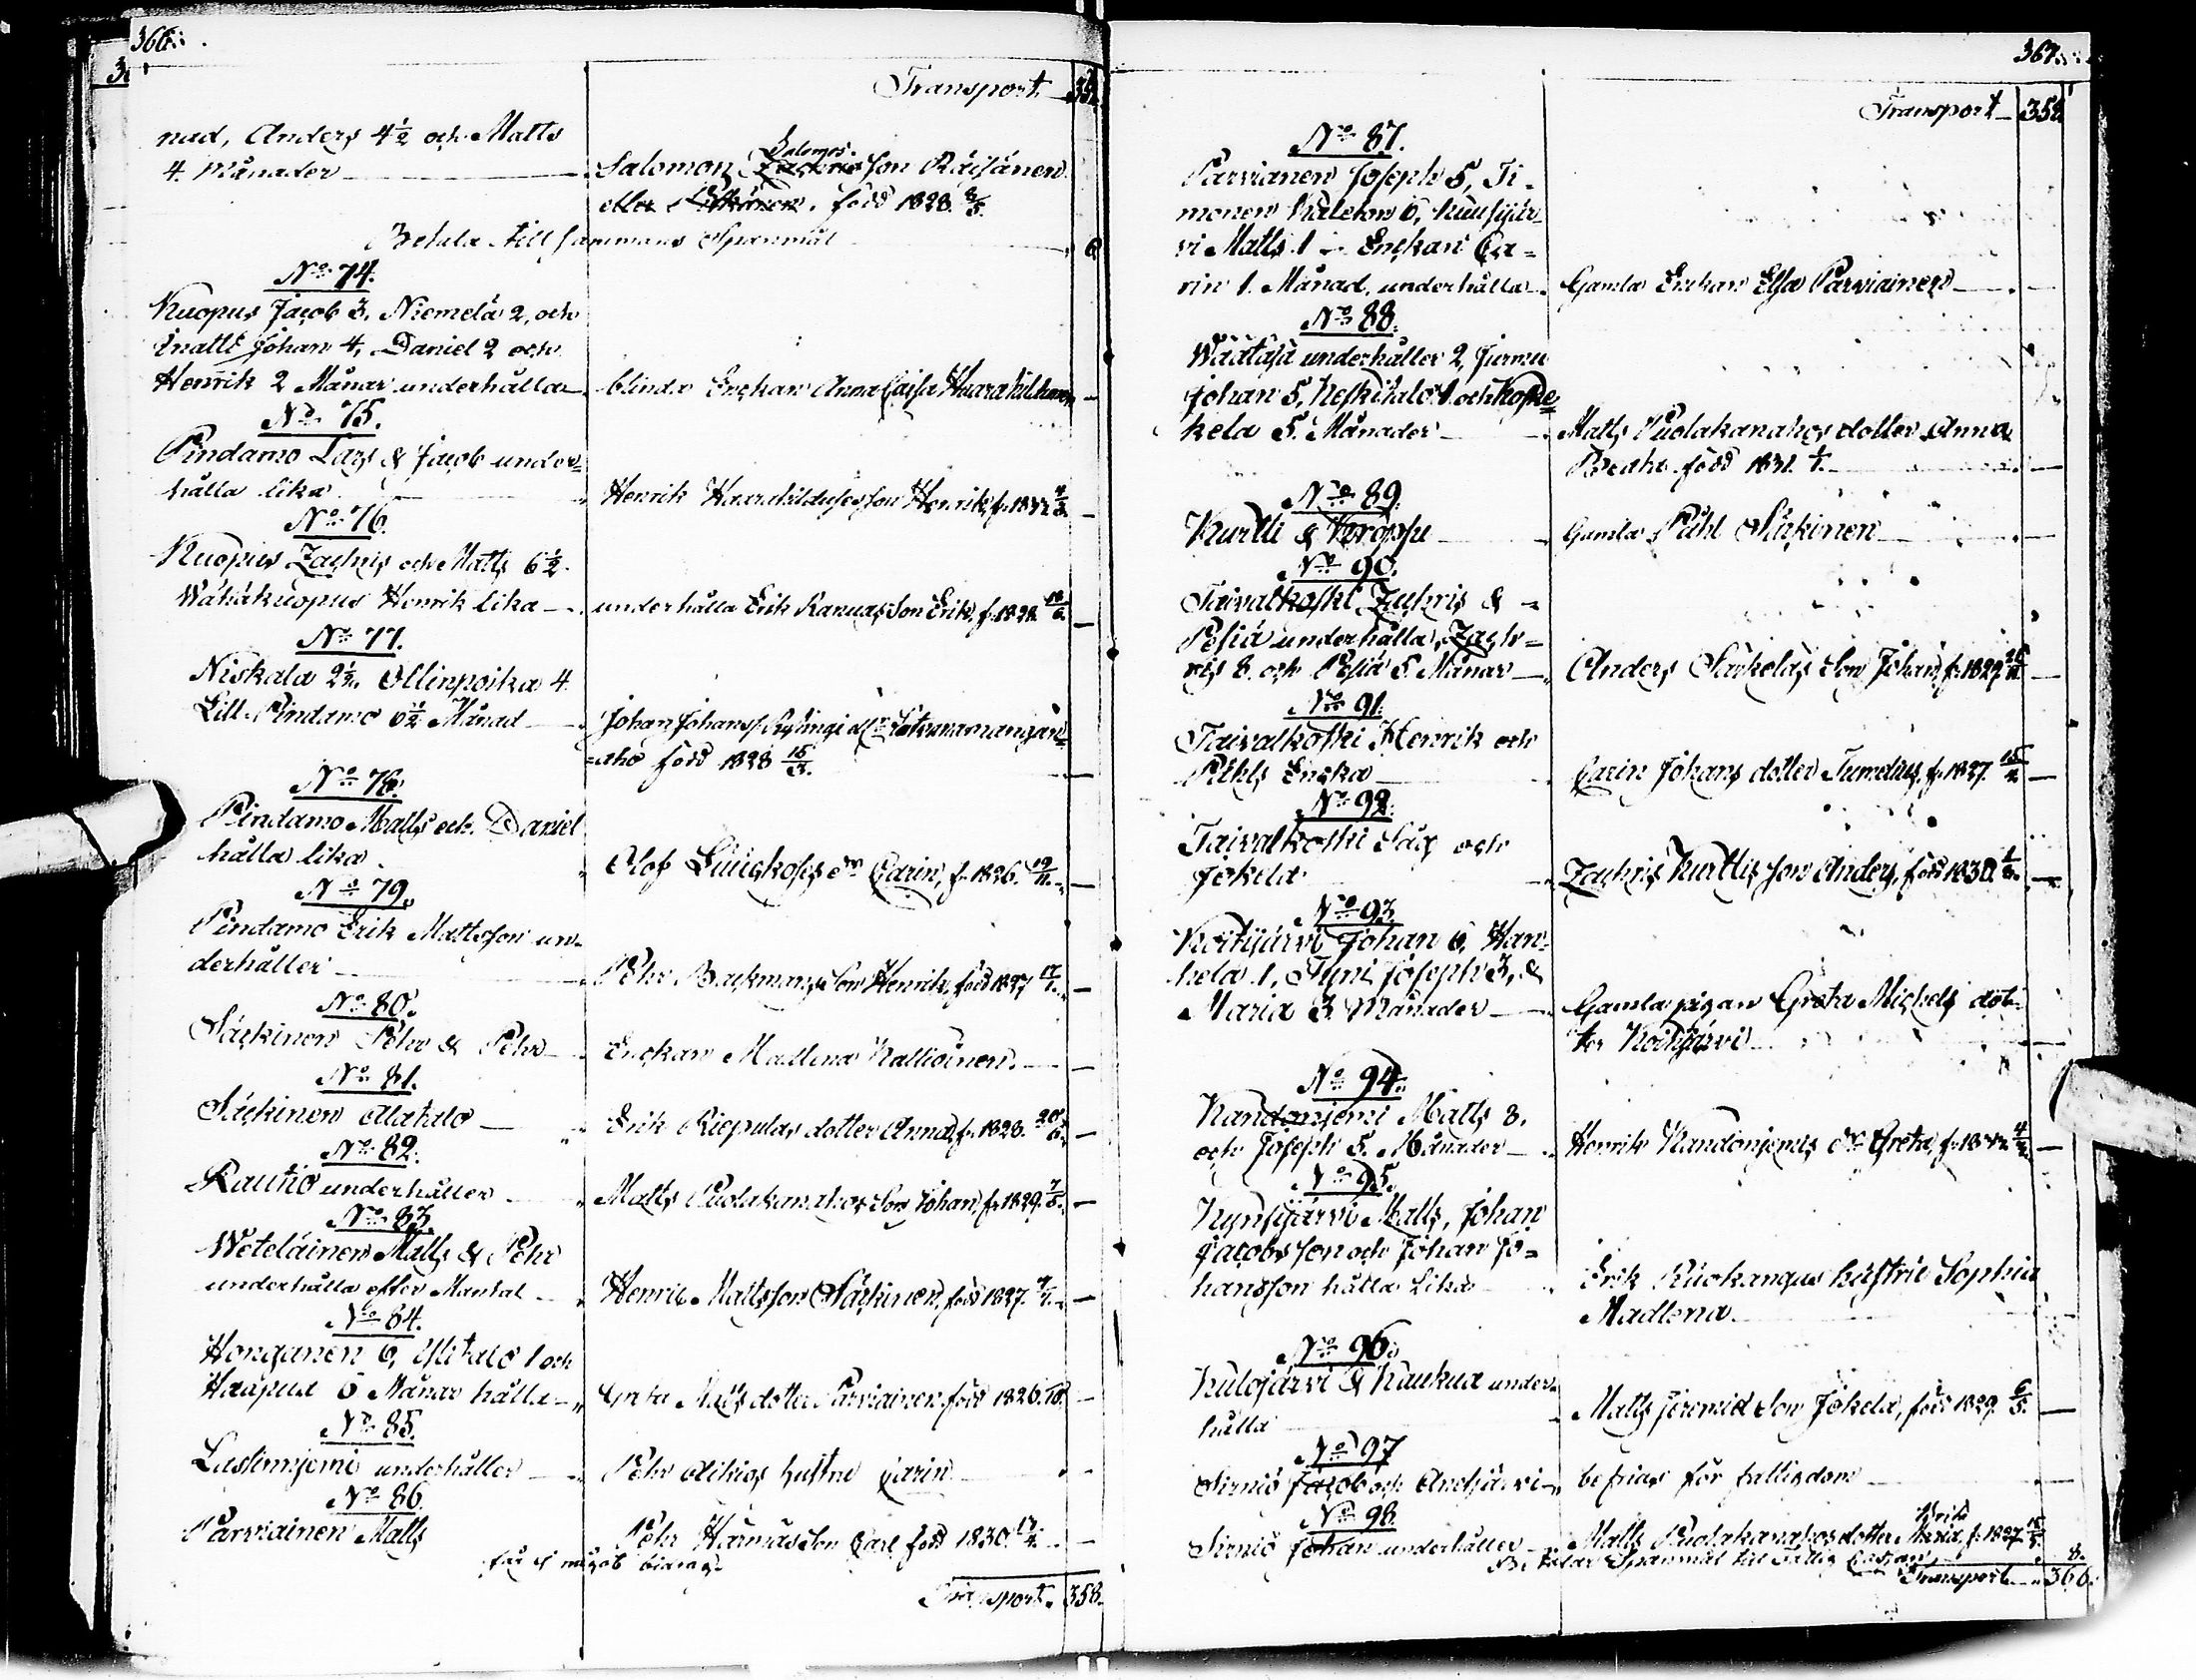 366.
Transport 352
nad, Anders 4 1/2 och Matts
4. Månader Salomon Salomos. son Räisänen
eller född 1828. 8/5.
Betala tillsammans Spanmål 6
No 74.
Kuopus Jacob 3, Niemelä 2, och
Inatti Johan 4, Daniel 2 och
Henrik 2 Månar underhålla blinda Enckan Anna Caisa
No 75.
Pindamo Lars & Jacob under=
hålla lika Henrik son Henrik, f.
No 76.
Kuopus Zachris och Matts 6 1/2
Wähäkuopus Henrik lika underhålla Erik Ranuas Son Erik, f. 1828
No 77.
Niskala 2 1/2, Ollinpoika 4
Lill Pindamo Månad Johan Johans
=aho född 1828 15/3.
No 78.
Pindamo Matts och Daniel
hålla lika Olof Carin, f. 1826. 19/11.
No 79.
Pindamo Erik Mattsson un=
derhåller Pehr Backmans Son Henrik, född 1827 17/1.
No 80.
Säckinen Pehr & Pehr Enckan Madlena Kallioinen.
No 81.
Säckinen Alatalo Erik Riepulas dotter Anna, f. 1828. 20/6.
No 82.
Rautio underhåller Matts Puolakanahos Son Johan, f. 1829. 7/5.
No 83.
Weteläinen Matts & Pehr
underhålla efter Mantal Henric Mattsson Säckinen, född 1827.
No 84.
Honganen 6, Ylitalo 1 och
Haapua 5 Månar hålla Greta Matts dotter Parviainen född 1826.
No 85.
Lastinnjemi underhåller Pehr Aikios hustru Carin
No 86.
Parviainen Matts Pehr Härmäs Son Carl född 1830.
får ej något bidrag.
Transport. 358.
367.
Transport 358
No 87.
Parvianen Joseph 5, Ti=
monen 6, Kuusijär=
vi Matts 1 Enckan Ca=
rin 1. Månad, underhålla Gamla Enckan Elsa Parviainen
No 88.
Wäätäjä underhåller 2, Jurmu
Johan 5, Keskitalo 1 och Koske=
kela 5. Månader Matts Puolakanahos dotter Anna
Brecha född 1831.
No 89.
Kurtti & Kroppu Gamla Pähl Säckinen
No 90.
Taivalkoski Zachris &
Pesiä underhålla, Zach=
ris 8. och Pesiä 5. Månar Anders Särkeläs Son Johan, f. 1829
No 91.
Taivalkoski Henrik och
Pähls Encka Carin Johans dotter Turnelius, f. 1827. 15/2
No 92.
Taivalkoski och
Jokela Zachris Kurttis son Anders, född 1830.
No 93.
Koitijärvi Johan 6, Han=
hela 1, Tyni Joseph 3, &
Maria 3. Månader Gamla pigan Greta Michels dot=
ter Koitijärvi
No 94.
Kandonjemi Matts 8,
och Joseph 5. Månader Henrik Kandonjemis Greta, f.
No 95.
Kynsijärvi Matts, Johan
Jacobsson och Johan Jo=
hansson hålla lika Erik Ruokangas hustru Sophia
Madlena.
No 96.
Kulojärvi & Kaukua under=
hålla Matts Jeremiæ Son Jokela, född 1829. 6/5.
No 97
Sirniö Jacob och befrias för fattigdom
No 98.
Sirniö Johan underhåller Matts Puolakanahos dotter Brita Maria, f. 1827
Betalar Spanmål till Fattig Cassan 8.
Transport 366.